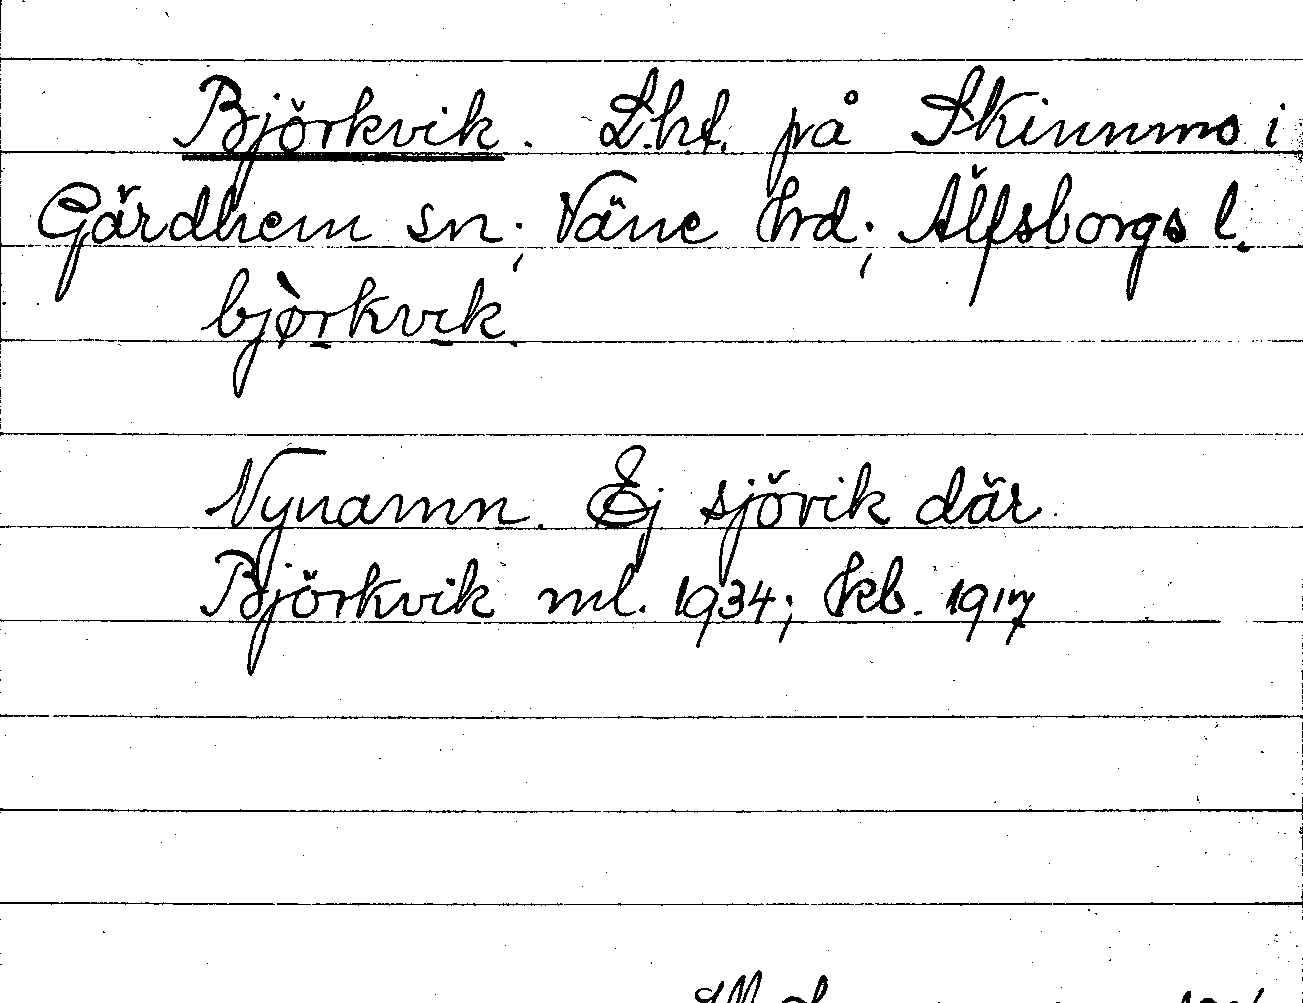 Björkvik. Lht. på Skinnmo i
Gärdhem sn; Väne hd; Älfsborgs l.
bjòrkvik.
Nynamn. Ej sjövik där.
Björkvik ml. 1934; kb. 1917